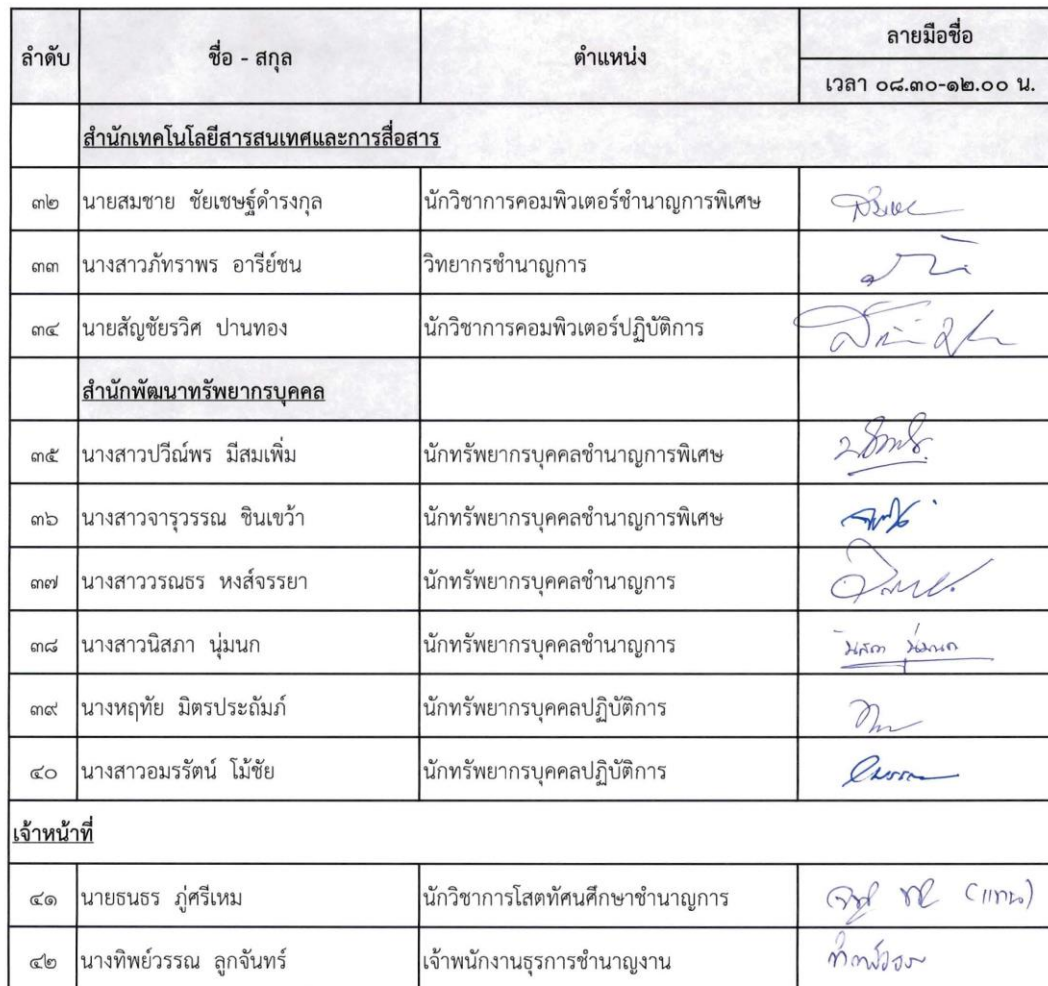 ลำดับ ชื่อ - สกุล ตำแหน่ง ลายมือชื่อ
เวลา ๐๘.๓๐-๑๒.๐๐ น.
สำนักเทคโนโลยีสารสนเทศและการสื่อสาร
๓๒ นายสมชาย ชัยเชษฐ์ดำรงกุล นักวิชาการคอมพิวเตอร์ชำนาญการพิเศษ
๓๓ นางสาวภัทราพร อารีย์ชน วิทยากรชำนาญการ
๓๔ นายสัญชัยรวิศ ปานทอง นักวิชาการคอมพิวเตอร์ปฏิบัติการ
สำนักพัฒนาทรัพยากรบุคคล
๓๕ นางสาวปวีณ์พร มีสมเพิ่ม นักทรัพยากรบุคคลชำนาญการพิเศษ
๓๖ นางสาวจารุวรรณ ชินเขว้า นักทรัพยากรบุคคลชำนาญการพิเศษ
๓๗ นางสาววรณธร หงส์จรรยา นักทรัพยากรบุคคลชำนาญการ
๓๘ นางสาวนิสภา นุ่มนก นักทรัพยากรบุคคลชำนาญการ นิสภา นุ่มนก
๓๙ นางหฤทัย มิตรประถัมภ์ นักทรัพยากรบุคคลปฏิบัติการ
๔๐ นางสาวอมรรัตน์ โม้ชัย นักทรัพยากรบุคคลปฏิบัติการ
เจ้าหน้าที่
๔๑ นายธนธร ภู่ศรีเหม นักวิชาการโสตทัศนศึกษาชำนาญการ (แทน)
๔๒ นางทิพย์วรรณ ลูกจันทร์ เจ้าพนักงานธุรการชำนาญงาน